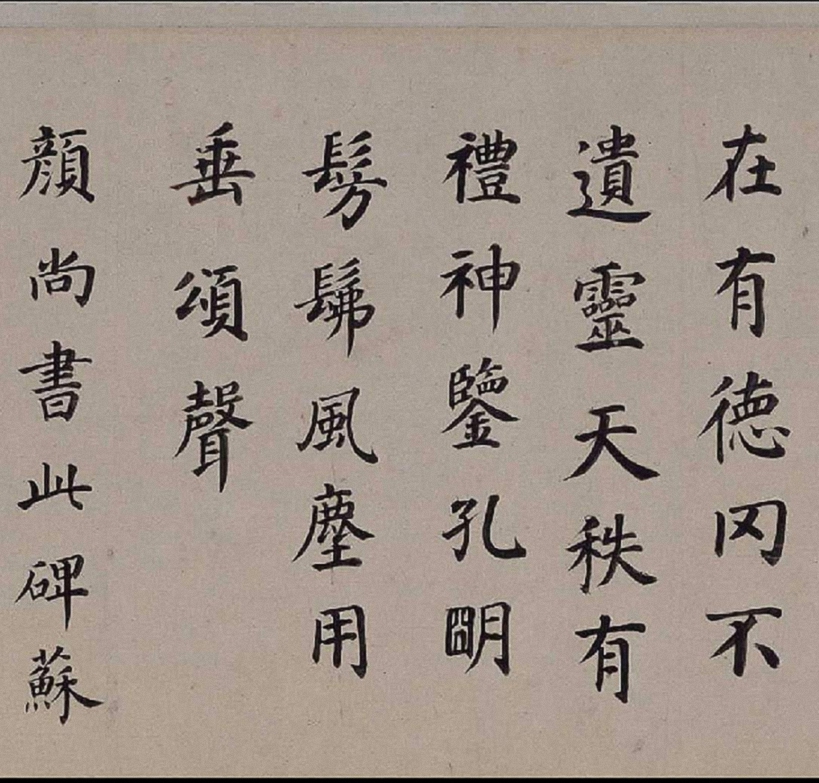 在有德冈不
遺靈天秩有
禮神鑒孔明
髣髴風塵用
垂頌聲
顔尚書此碑蘇